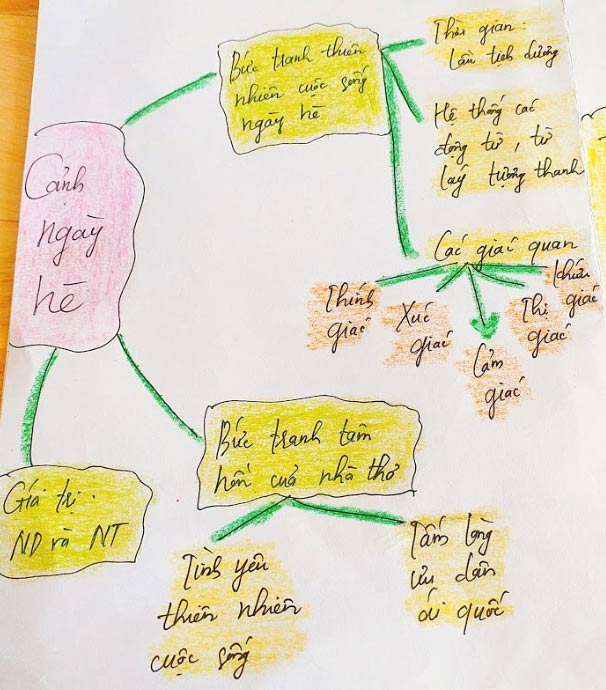 Cảnh
ngày
hè
Bức tranh thiên
nhiên cuộc sống
ngày hè
Thời gian:
Lầu tịch dương
Hệ thống các
động từ, từ
láy tượng thanh
Các giác quan
Thính
giác
Xúc
giác
Cảm
giác
Thị giác
khứu
Bức tranh tâm
hồn của nhà thơ
Tình yêu
thiên nhiên
cuộc sống
Tấm lòng
ưu dân
ái quốc
Giá trị
ND và NT